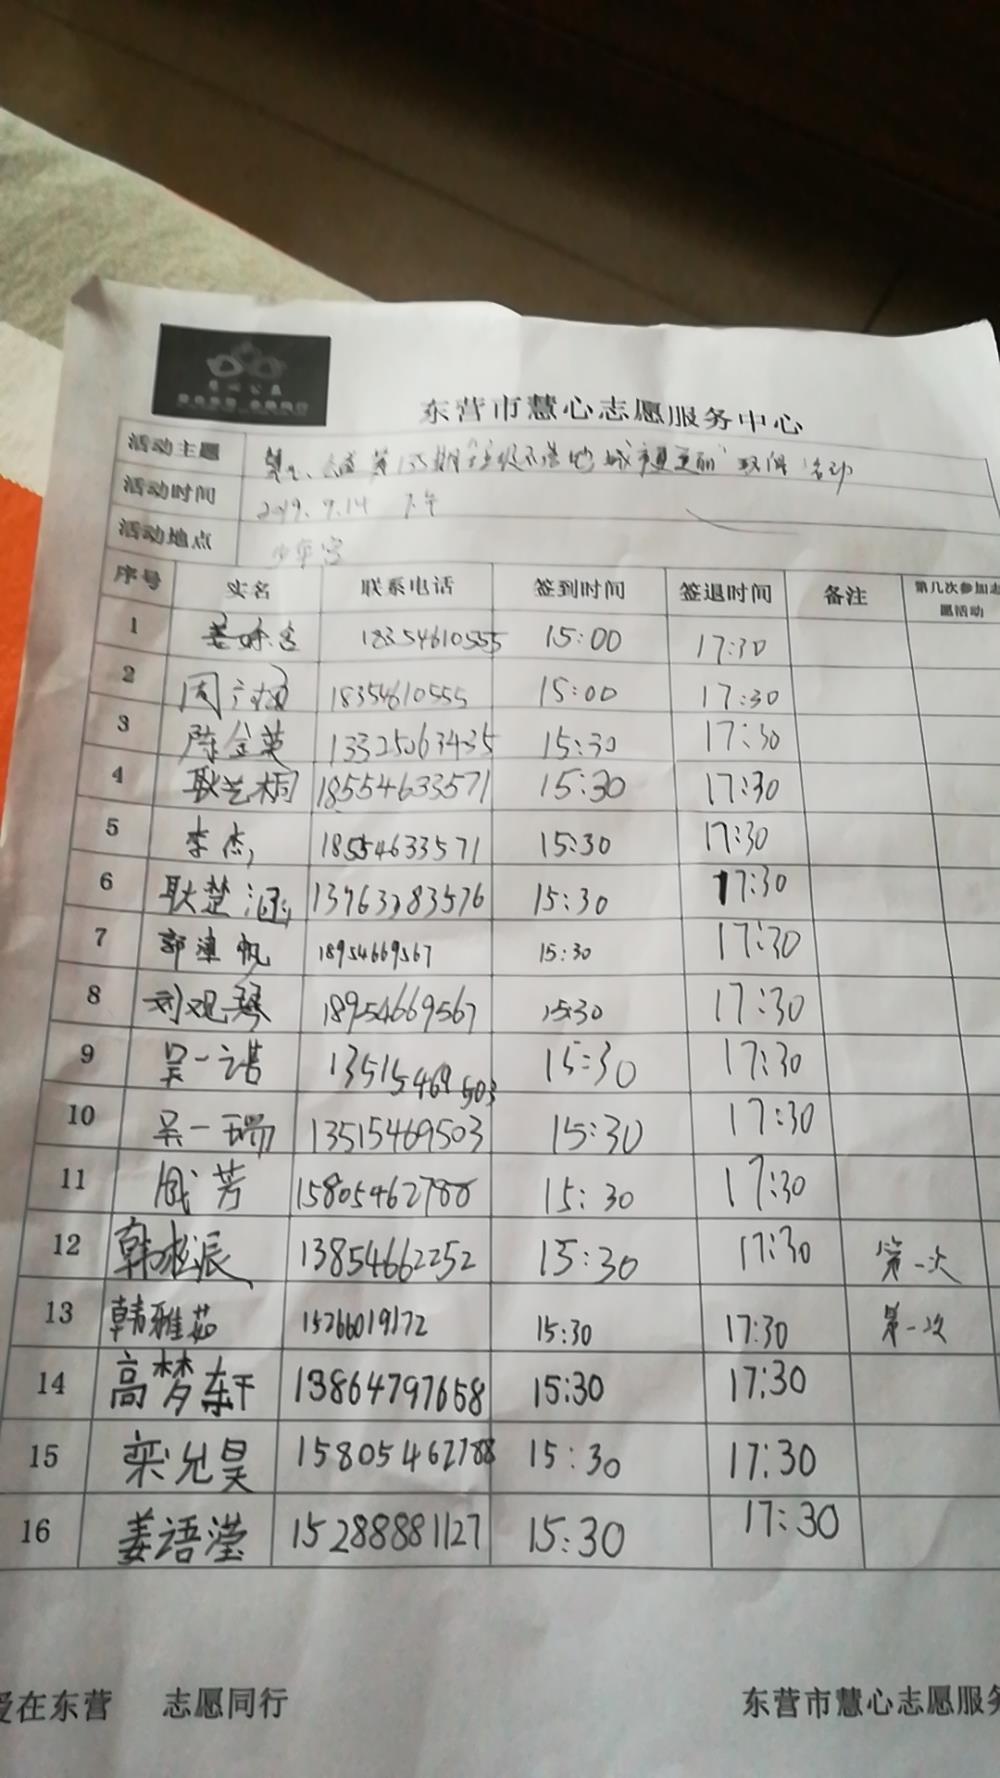 东营市慧心志愿服务中心
活动主题 城市更美丽 活动
活动时间 2019.7.14 下午
活动地点 少年宫
序号 实名 联系电话 签到时间 签退时间 备注 第几次参加志愿活动
1 18354610555 15:00 17:30
2 周 18354610555 15:00 17:30
3 陈金英 13325063435 15:30 17:30
4 耿艺桐 18554633571 15:30 17:30
5 李杰 18554633571 15:30 17:30
6 耿楚涵 15:30 17:30
7 郭津帆 18954669567 15:30 17:30
8 刘观琴 18954669567 15:30 17:30
9 吴一诺 13515469503 15:30 17:30
10 吴一瑞 13515469503 15:30 17:30
11 成芳 15805462788 15:30 17:30
12 韩松辰 13854662252 15:30 17:30 第一次
13 韩雅茹 15266019172 15:30 17:30 第一次
14 高梦轩 13864797658 15:30 17:30
15 栾允昊 15805462788 15:30 17:30
16 姜语滢 15288881127 15:30 17:30
爱在东营 志愿同行 东营市慧心志愿服务